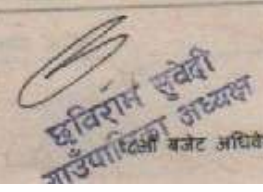 छविराम सुवेदी
गाउँपालिका अध्यक्ष
बजेट अधिवे